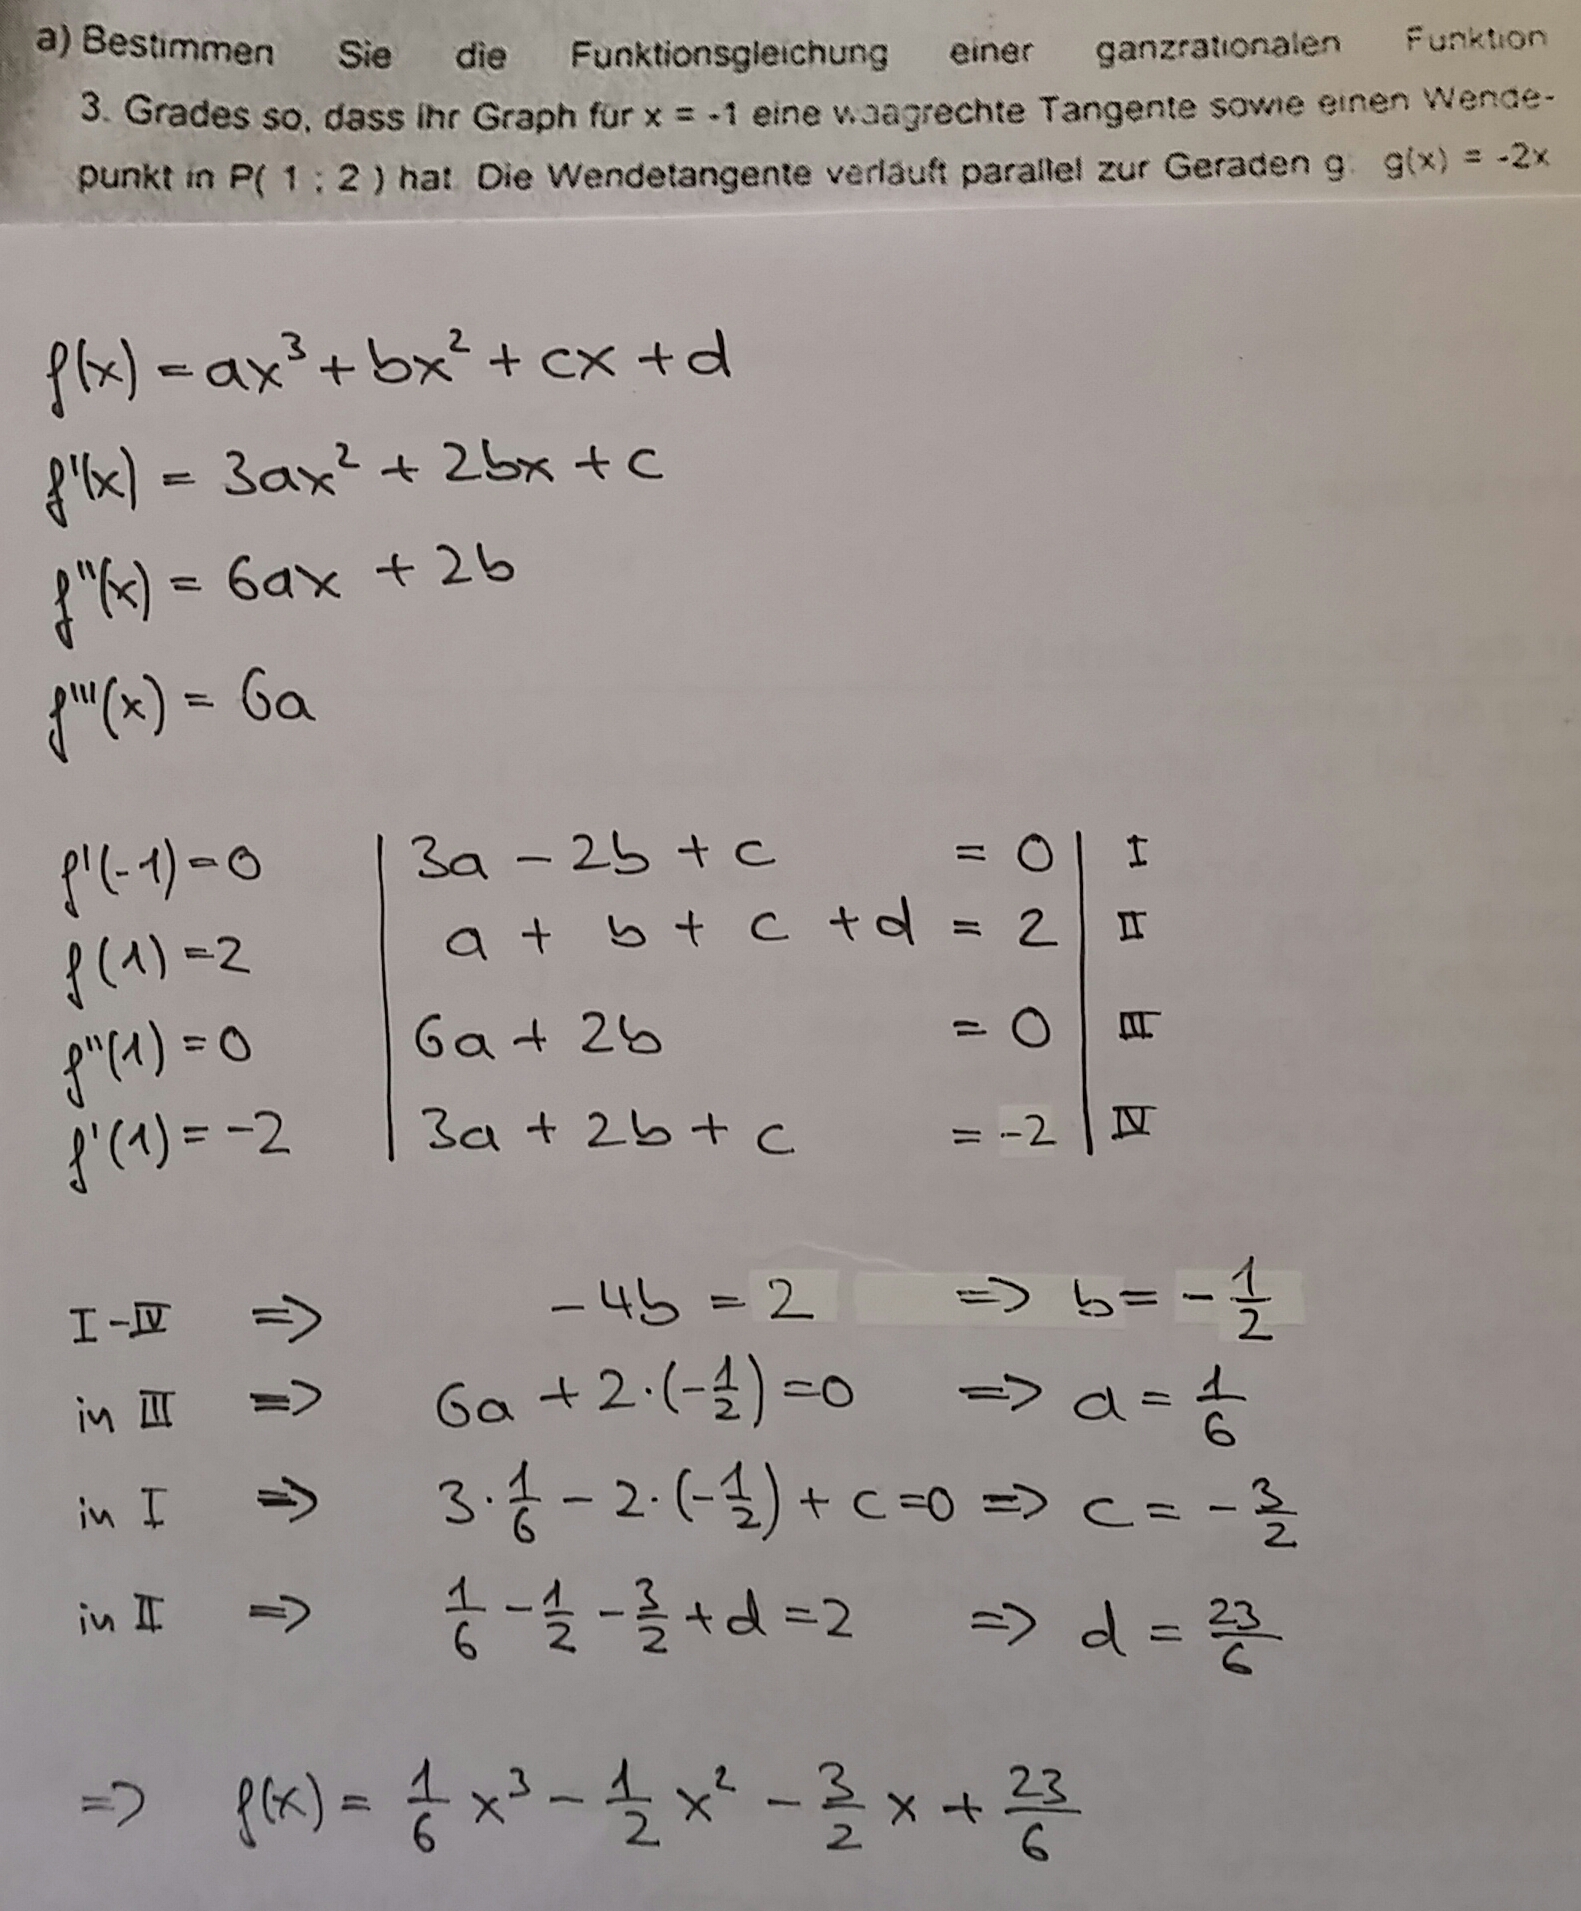 a) Bestimmen Sie die Funktionsgleichung einer ganzrationalen Funktion
3. Grades so, dass ihr Graph für x = -1 eine waagrechte Tangente sowie einen Wende-
punkt in P( 1 ; 2 ) hat. Die Wendetangente verläuft parallel zur Geraden g: g(x) = -2x
f(x) = ax³ + bx² + cx + d
f'(x) = 3ax² + 2bx + c
f''(x) = 6ax + 2b
f'''(x) = 6a
f'(-1) = 0 | 3a - 2b + c = 0 | I
f(1) = 2 | a + b + c + d = 2 | II
f''(1) = 0 | 6a + 2b = 0 | III
f'(1) = -2 | 3a + 2b + c = -2 | IV
I - IV => -4b = 2 => b = -1/2
in III => 6a + 2·(-1/2) = 0 => a = 1/6
in I => 3·1/6 - 2·(-1/2) + c = 0 => c = -3/2
in II => 1/6 - 1/2 - 3/2 + d = 2 => d = 23/6
=> f(x) = 1/6 x³ - 1/2 x² - 3/2 x + 23/6